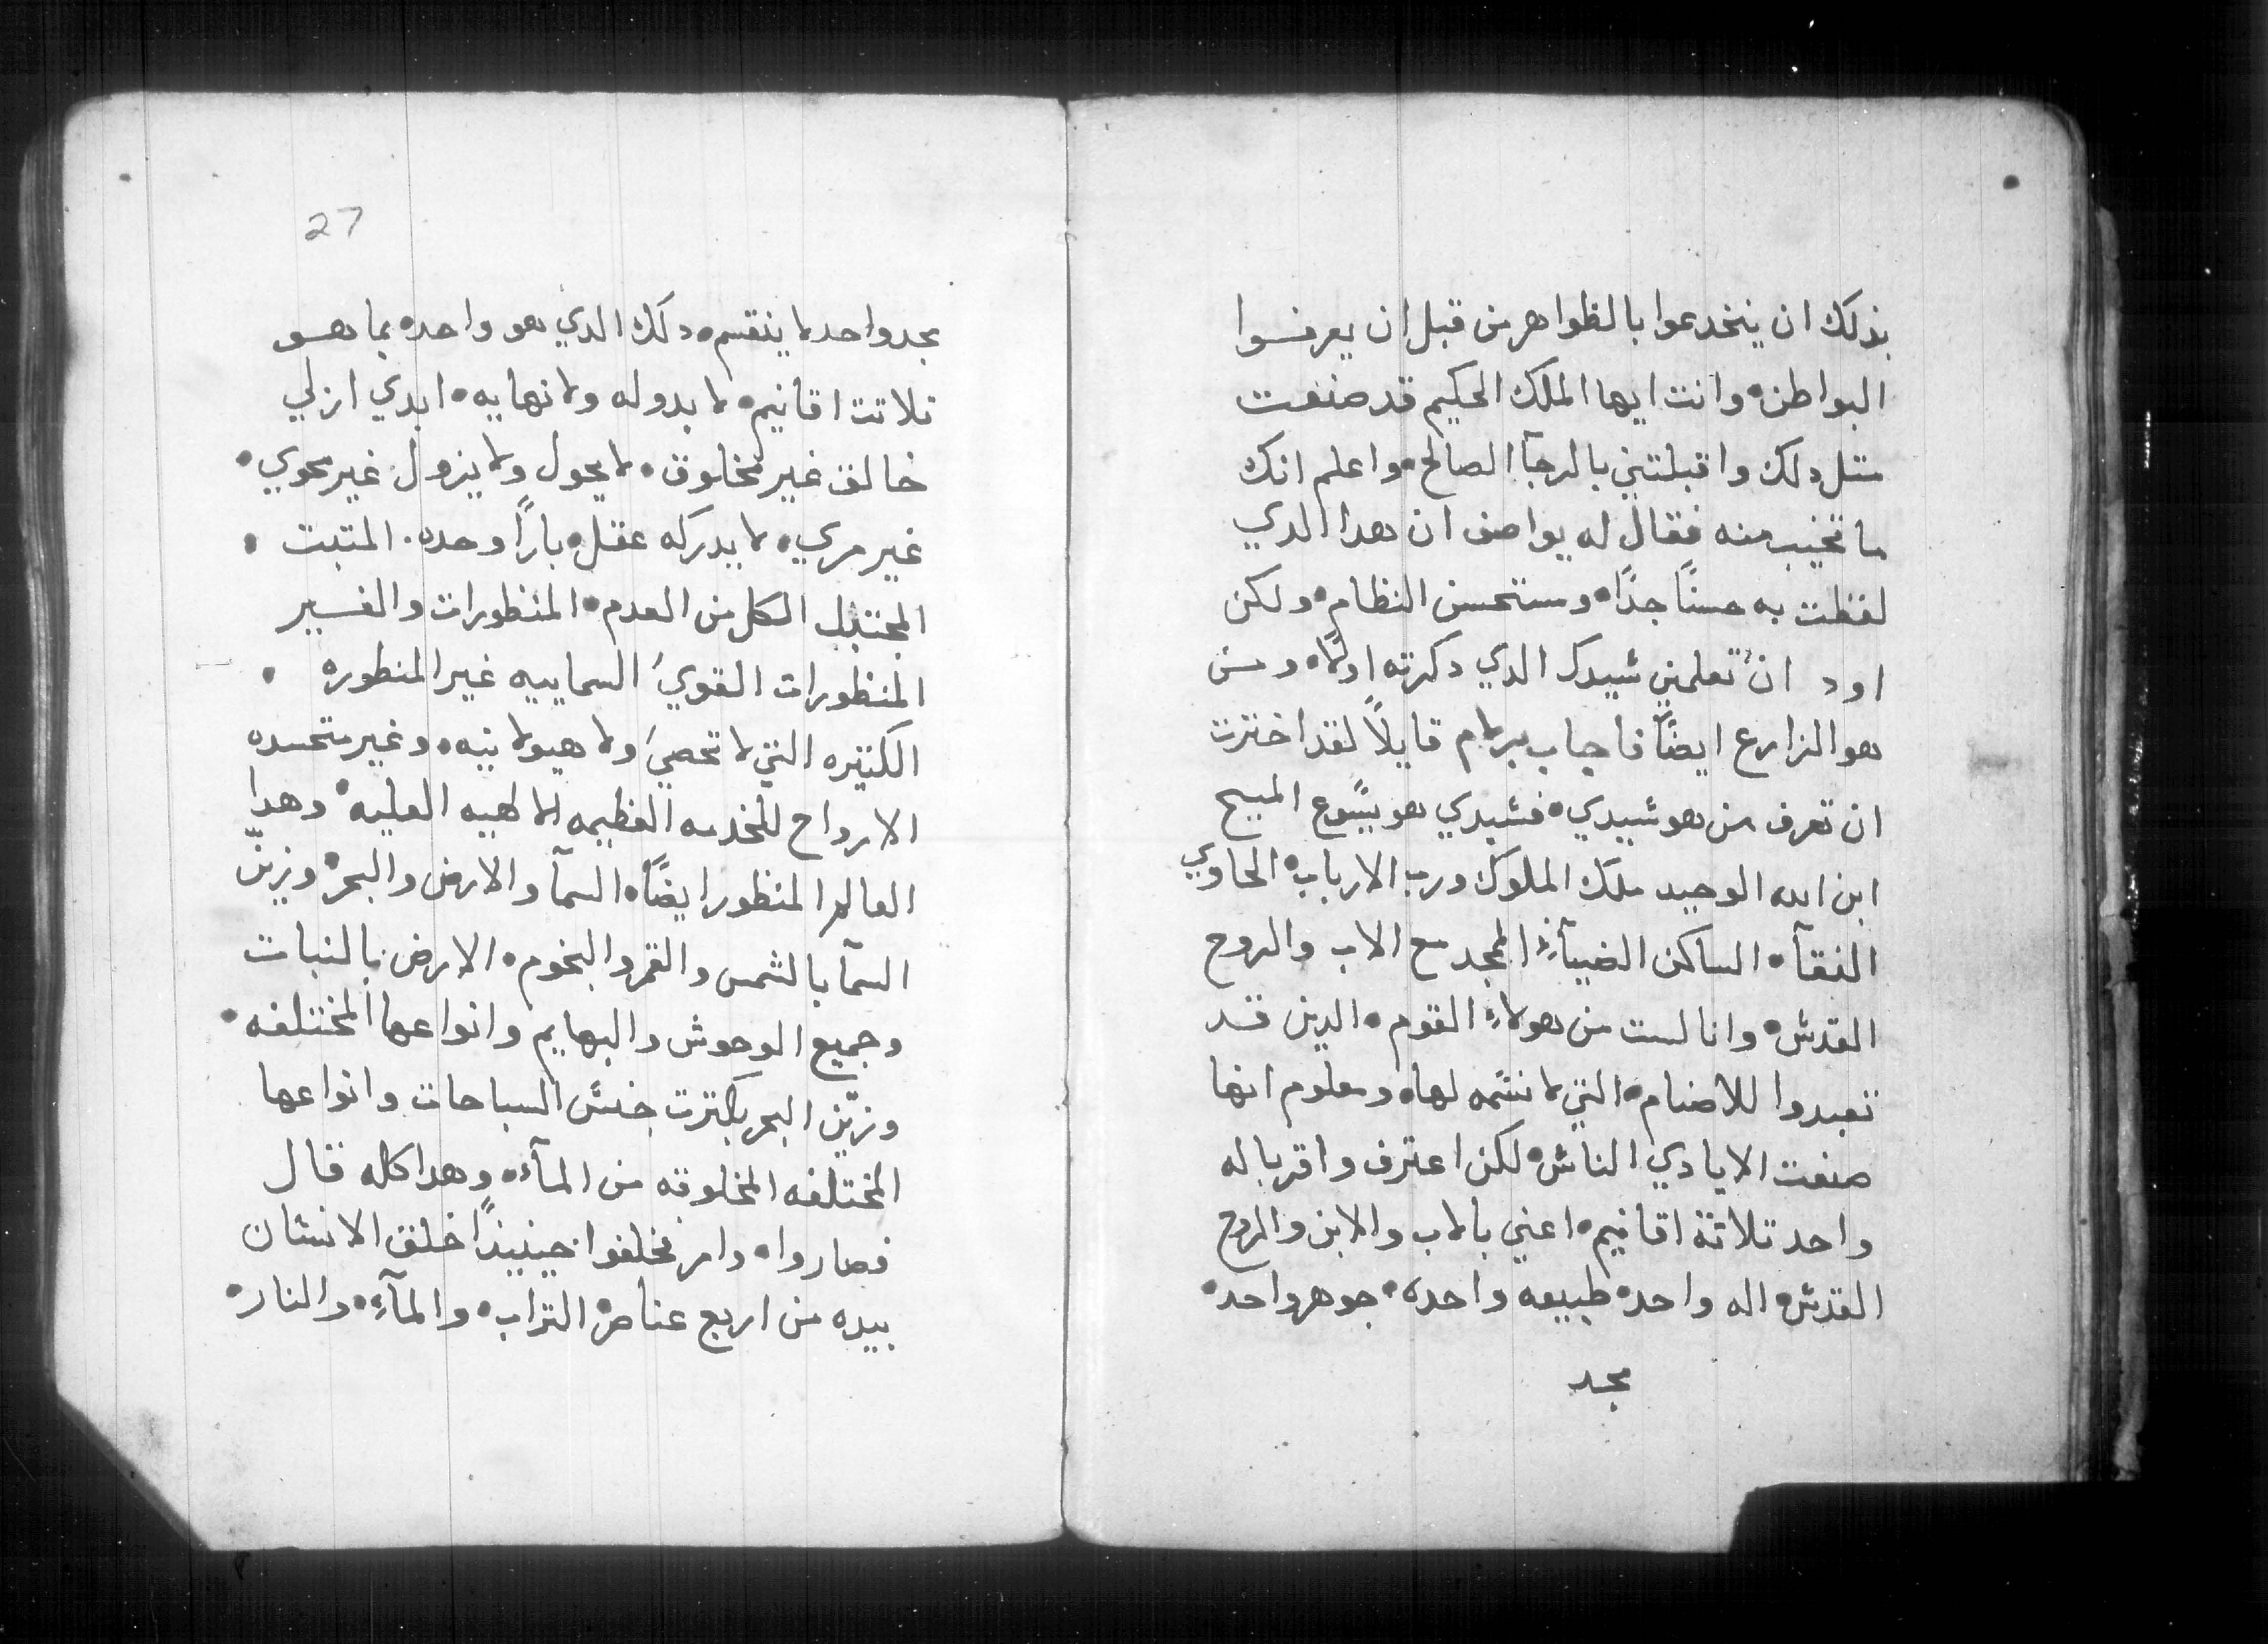 بذلك ان ينخدعوا بالظواهر من قبل ان يعرفوا
البواطن • وانت ايها الملك الحكيم قد صنعت
متل دلك واقبلتني بالرجآ الصالح • واعلم انك
ما تخيب منه فقال له يواصف ان هدا الدي
لفظت به حسنًا جدًا • ومستحسن النظام • ولكن
اود ان تعلمني شيدك الدي دكرته اولًا • ومن
هو الزارع ايضًا فاجاب برلام قايلاً لقد اخترت
ان تعرف من هو شيدي • فشيدي هو يسوع المسيح
ابن الله الوحيد ملك الملوك ورب الارباب • الحاوي
النقآ • الساكن الضيآءِ المجد مع الاب والروح
القدش • وانا لست من هولاءِ القوم • الدين قد
تعبدوا للاصنام • التي لا نشمه لها • ومعلوم انها
صنعت الايادي الناش • لكن اعترف واقر باله
واحد تلاثة اقانيم • اعني بالاب والابن والروح
القدش • اله واحد • طبيعه واحده • جوهر واحد •
مجد
27
مجد واحد لا ينقسم • دلك الدي هو واحده بما هو
تلاتت اقانيم • لا بدو له ولا نهايه • ابدي ازلي
خالق غير مخلوق • لا يحول ولا يزول غير محوي •
غير مري • لا يدركه عقل • بارًا وحده • المتبت •
المجتبل الكل من العدم • المنظورات والغير
المنظورات القويَ السماييه غير المنظوره •
الكتيره التي لا تحصيَ ولا هيولانيه • وغير متجسده
الارواح للخدمه العظيمه الالهيه العليه • وهدا
العالم المنظور ايضًا • السمآ والارض والبحر • وزيّن
السمآ بالشمس والقمر والنجوم • الارض بالنبات
وجميع الوحوش والبهايم وانواعها المختلفه •
وزيّن البحر بكترت جنش السباحات وانواعها
المختلفه المخلوقه من المآء • وهدا كله قال
فصاروا • وامر فخلقوا حينيذًا خلق الانشان
بيده من اربع عناصر • التراب • والمآءِ • والنار •